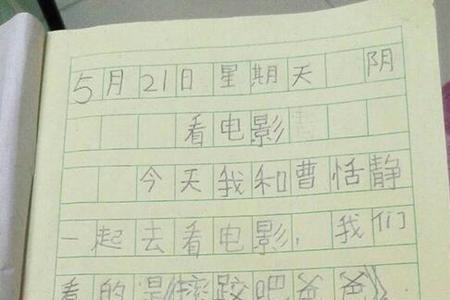 5月21日 星期天 阴
看电影
今天我和曹恬静
一起去看电影,我们
看的是《摔跤吧爸爸》